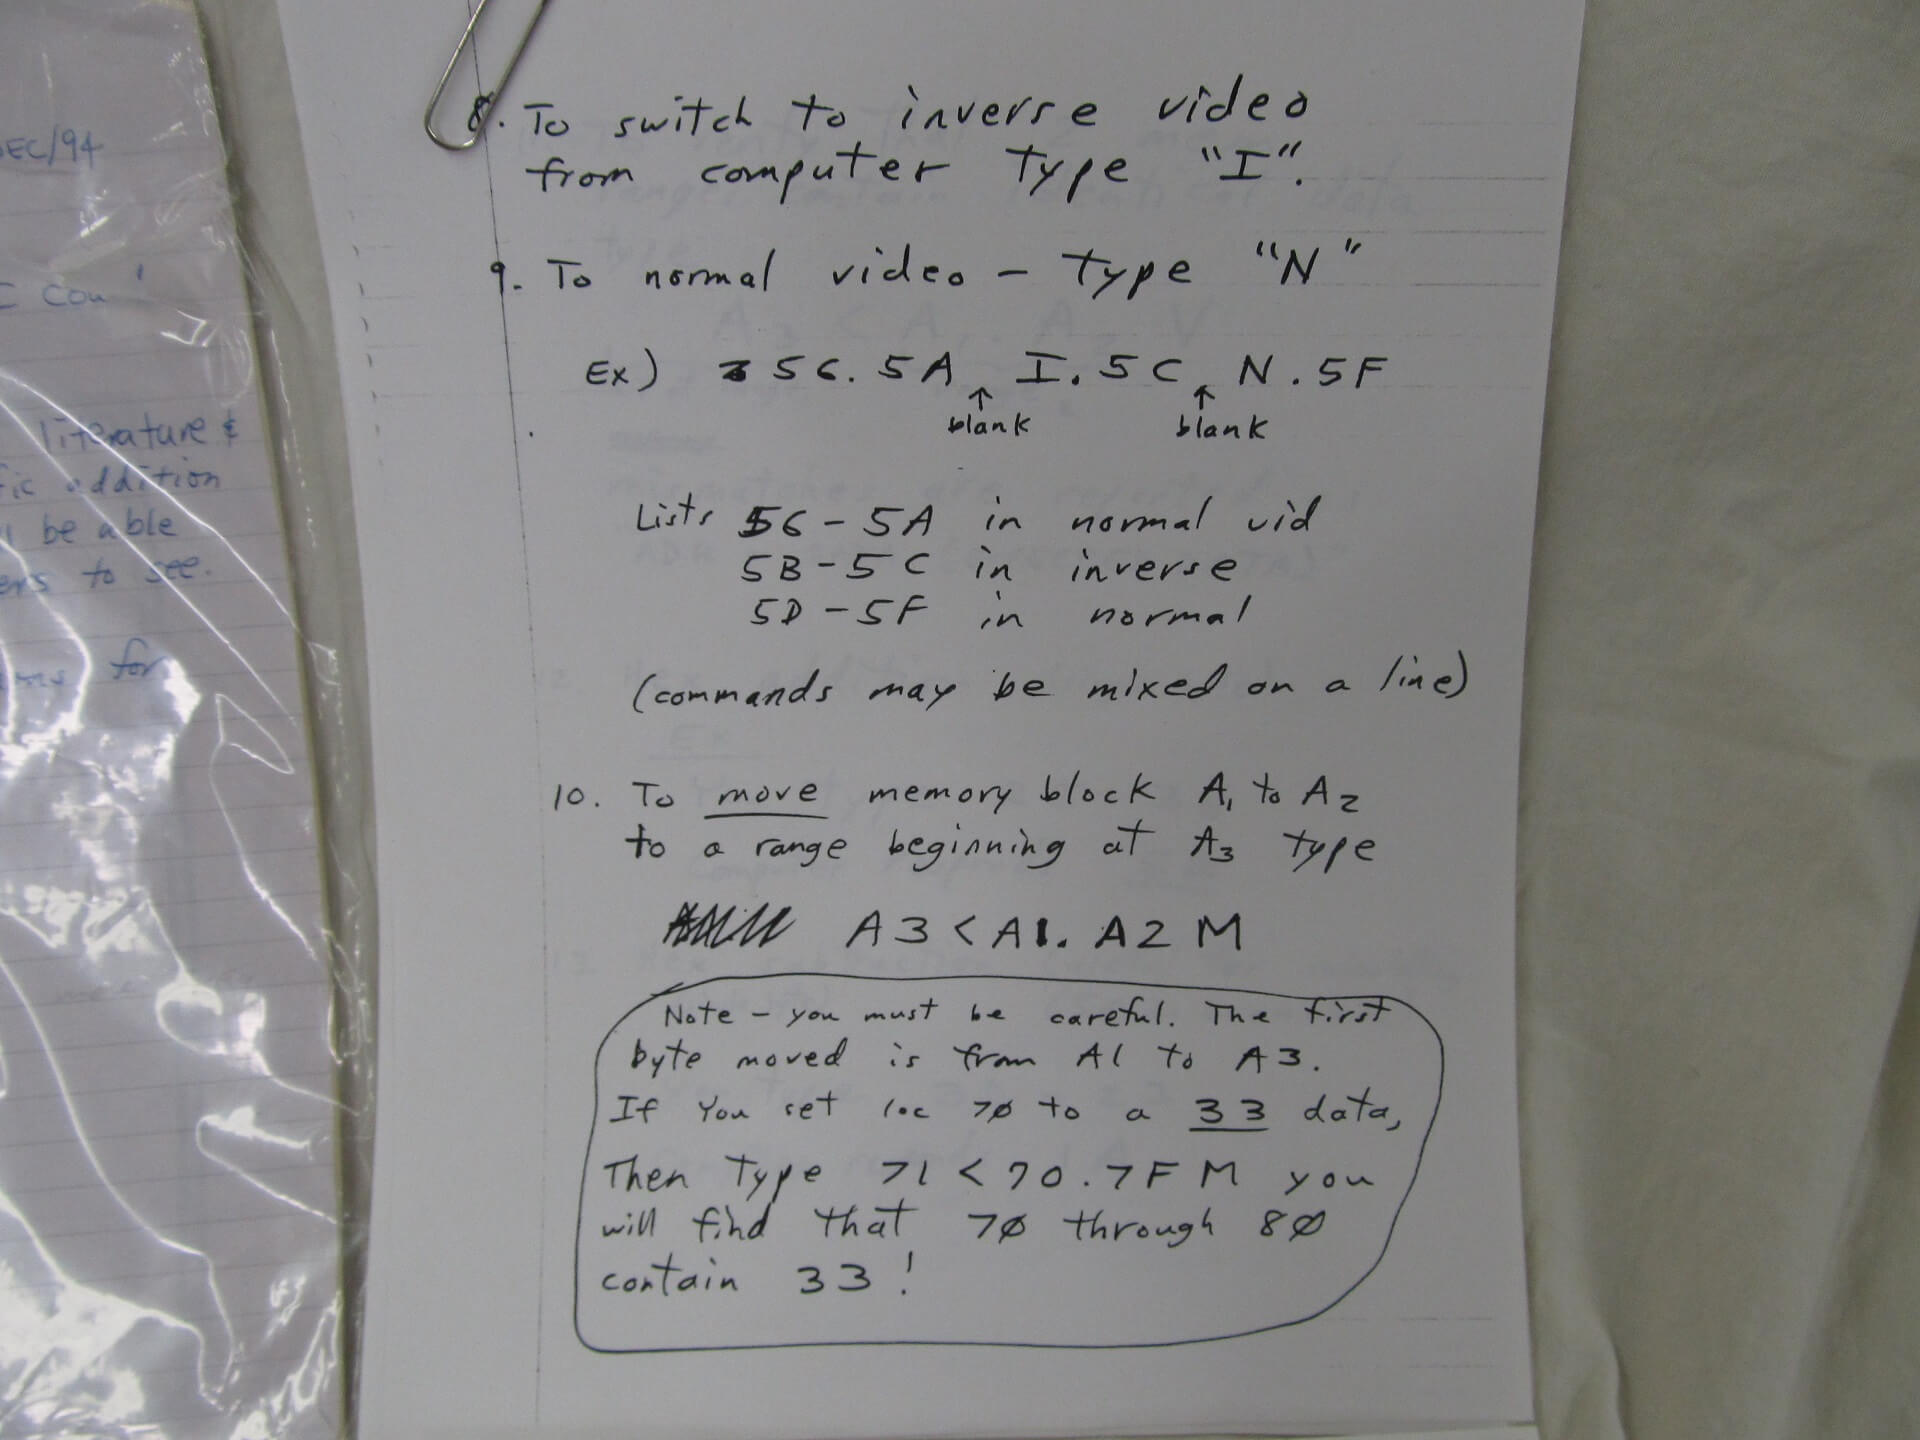 8. To switch to inverse video
from computer type "I".
9. To normal video - type "N"
Ex) 56.5A I.5C N.5F
↑ ↑
blank blank
Lists 56-5A in normal vid
5B-5C in inverse
5D-5F in normal
(commands may be mixed on a line)
10. To move memory block A1 to A2
to a range beginning at A3 type
A3<A1.A2 M
Note - you must be careful. The first
byte moved is from A1 to A3.
If You set loc 7Ø to a 33 data,
Then Type 71<70.7F M you
will find that 7Ø through 8Ø
contain 33!
EC/94
C Cou
literature &
fic addition
be able
ers to see.
for